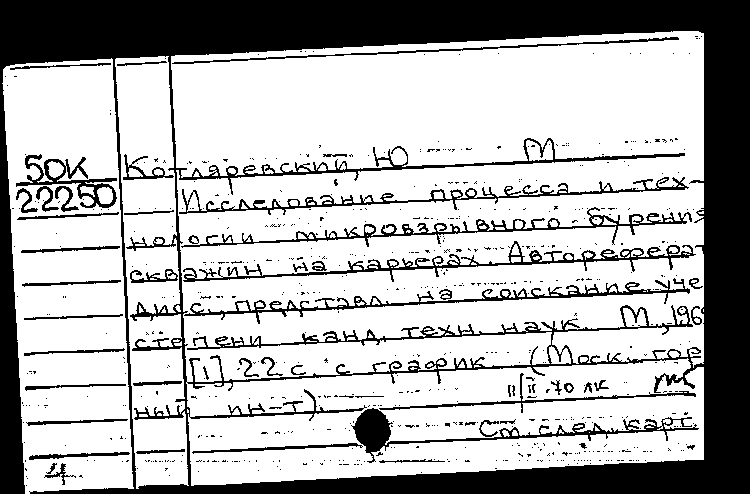 50К Котляревский, Ю М
22250 Исследование процесса и тех-
нологии микровзрывного бурения
скважин на карьерах. Автореферат
дисс., представл. на соискание уче
степени канд. техн. наук. М., 196
[1], 22 с. с график (Моск. гор
ный ин-т).
11/II-70 лк
См. след. карт.
4